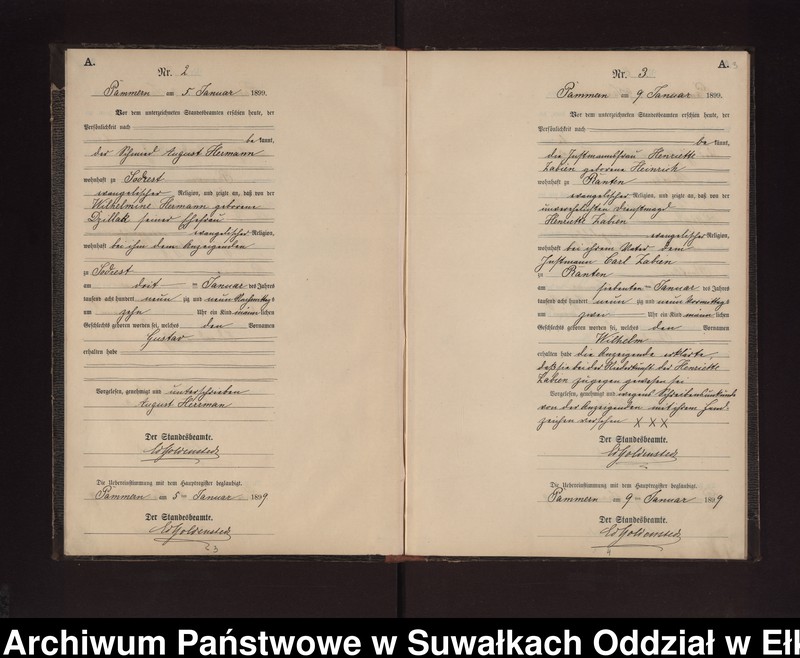 A.
Nr. 2
Pammern am 5 Januar 1899.
Vor dem unterzeichneten Standesbeamten erschien heute, der
Persönlichkeit nach
be kannt,
der Schmied August Hermann
wohnhaft zu Sodrest
evangelischer Religion, und zeigte an, daß von der
Wilhelmine Hermann geborene
Dzillak seiner Ehefrau
evangelischer Religion,
wohnhaft bei ihm dem Anzeigenden
zu Sodrest
am drit ten Januar des Jahres
tausend acht hundert neun zig und neun Nachmittags
um zehn Uhr ein Kind männ lichen
Geschlechts geboren worden sei, welches den Vornamen
Gustav
erhalten habe
Vorgelesen, genehmigt und unterschrieben
August Herrman
Der Standesbeamte.
Die Uebereinstimmung mit dem Hauptregister beglaubigt.
Pammern am 5 ten Januar 1899
Der Standesbeamte.
A. 3
Nr. 3.
Pammern am 9 Januar 1899.
Vor dem unterzeichneten Standesbeamten erschien heute, der
Persönlichkeit nach
be kannt,
die Instmannsfrau Henriette
Zabien geborene Heinrich
wohnhaft zu Ranten
evangelischer Religion, und zeigte an, daß von der
unverehelichten Dienstmagd
Henriette Zabien
evangelischer Religion,
wohnhaft bei ihrem Vater dem
Instmann Carl Zabien
zu Ranten
am siebenten Januar des Jahres
tausend acht hundert neun zig und neun Vormittags
um zwei Uhr ein Kind männ lichen
Geschlechts geboren worden sei, welches den Vornamen
Wilhelm
erhalten habe die Anzeigende erklärte,
daß sie bei der Niederkunft der Henriette
Zabien zugegen gewesen sei.
Vorgelesen, genehmigt und wegen Schreibensunkunde
von der Anzeigenden mit ihrem Hand-
zeichen versehen X X X
Der Standesbeamte.
Die Uebereinstimmung mit dem Hauptregister beglaubigt.
Pammern am 9 ten Januar 1899
Der Standesbeamte.
Archiwum Państwowe w Suwałkach Oddział w Ełk